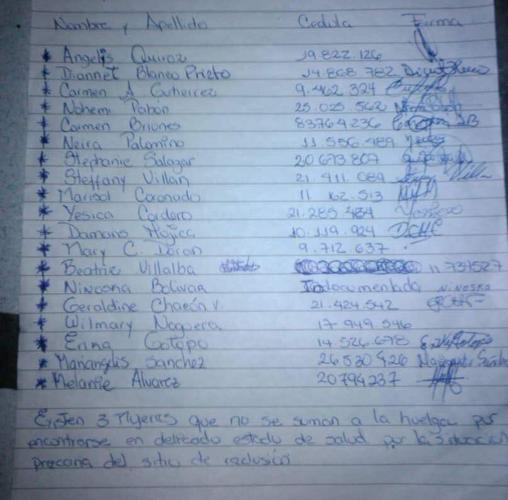 Nombre y Apellido Cedula Firma
* Angelis Quiroz 19.822.126
* Diannet Blanco Prieto 14.868 782
* Carmen A Gutierrez 9.462 324
* Nohemi Pabón 25.025 562
* Carmen Briones 83764236
* Neira Palomino 11.556.489
* Stephanie Salazar 20673807
* Steffany Villan 21.411 089
* Marisol Coronado 11 162.513
* Yesica Cordero 21.285 484
* Damaris Mojica 10.119.924
* Mary C. 9.712 637
* Beatriz Villalba 11.731527
* Bolivar Indocumentada
* Geraldine Chacón V. 21.424.542
* Wilmary Noguera 17 949 546
* Erina Cotopo 14.526.678
* Mariangelis Sanchez 26530426
* Melanie Alvarez 20794237
Existen 3 Mujeres que no se suman a la huelga por
encontrarse en delicado estado de salud por la situación
precaria del sitio de reclusión